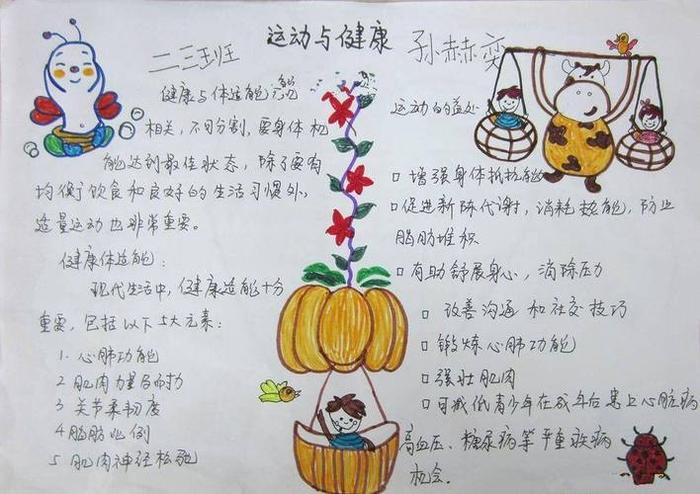 运动与健康
二三班
孙赫奕
健康与体适能息息
相关，不可分割，要身体机
能达到最佳状态，除了要有
均衡饮食和良好的生活习惯外，
适量运动也非常重要。
健康体适能：
现代生活中，健康适能十分
重要，包括以下5大元素：
1. 心肺功能
2 肌肉力量与耐力
3 关节柔韧度
4 脂肪比例
5 肌肉神经松弛
运动的益处
□ 增强身体抵抗能
□ 促进新陈代谢，消耗热能，防止
脂肪堆积
□ 有助舒展身心，消除压力
□ 改善沟通和社交技巧
□ 锻炼心肺功能
□ 强壮肌肉
□ 可减低青少年在成年后患上心脏病
高血压、糖尿病等严重疾病
机会。